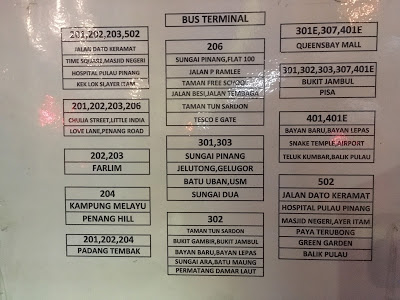 BUS TERMINAL
201,202,203,502
JALAN DATO KERAMAT
TIME SQUARE,MASJID NEGERI
HOSPITAL PULAU PINANG
KEK LOK SI,AYER ITAM
201,202,203,206
CHULIA STREET,LITTLE INDIA
LOVE LANE,PENANG ROAD
202,203
FARLIM
204
KAMPUNG MELAYU
PENANG HILL
201,202,204
PADANG TEMBAK
206
SUNGAI PINANG,FLAT 100
JALAN P RAMLEE
TAMAN FREE SCHOOL
JALAN BESI,JALAN TEMBAGA
TAMAN TUN SARDON
TESCO E GATE
301,303
SUNGAI PINANG
JELUTONG,GELUGOR
BATU UBAN,USM
SUNGAI DUA
302
TAMAN TUN SARDON
BUKIT GAMBIR,BUKIT JAMBUL
BAYAN BARU,BAYAN LEPAS
SUNGAI ARA,BATU MAUNG
PERMATANG DAMAR LAUT
301E,307,401E
QUEENSBAY MALL
301,302,303,307,401E
BUKIT JAMBUL
PISA
401,401E
BAYAN BARU,BAYAN LEPAS
SNAKE TEMPLE,AIRPORT
TELUK KUMBAR,BALIK PULAU
502
JALAN DATO KERAMAT
HOSPITAL PULAU PINANG
MASJID NEGERI,AYER ITAM
PAYA TERUBONG
GREEN GARDEN
BALIK PULAU